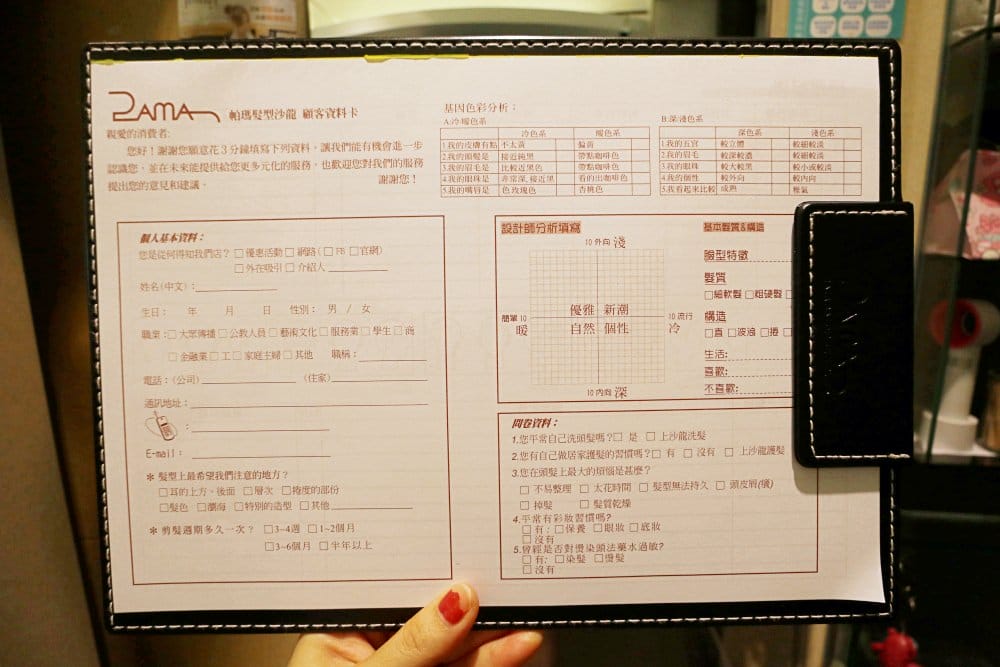 PAMA 帕瑪髮型沙龍 顧客資料卡
親愛的消費者:
您好！謝謝您願意花3分鐘填寫下列資料，讓我們能有機會進一步
認識您，並在未來能提供給您更多元化的服務，也歡迎您對我們的服務
提出您的意見和建議。 謝謝您！
基因色彩分析：
A:冷/暖色系
冷色系 暖色系
1.我的皮膚有點 不太黃 偏黃
2.我的頭髮是 接近純黑 帶點咖啡色
3.我的眉毛是 比較近黑色 帶點咖啡色
4.我的眼珠是 非常深,接近黑 看的出咖啡色
5.我的嘴唇是 色玫瑰色 杏桃色
B:深/淺色系
深色系 淺色系
1.我的五官 較立體 較細較淡
2.我的眉毛 較深較濃 較細較淡
3.我的眼珠 較大較黑 較小或較淡
4.我的個性 較外向 較內向
5.我看起來比較 成熟 稚氣
個人基本資料：
您是從何得知我們店？ □優惠活動 □網路( □FB □官網)
□外在吸引 □介紹人
姓名(中文)：
生日： 年 月 日 性別： 男 / 女
職業：□大眾傳播 □公教人員 □藝術文化 □服務業 □學生 □商
□金融業 □工 □家庭主婦 □其他 職稱：
電話：(公司) (住家)
通訊地址：
:
E-mail：
＊髮型上最希望我們注意的地方？
□耳的上方、後面 □層次 □捲度的部份
□髮色 □瀏海 □特別的造型 □其他
＊剪髮週期多久一次？ □3~4週 □1~2個月
□3~6個月 □半年以上
設計師分析填寫
10 外向 淺
簡單 10 優雅 新潮 10 流行
暖 自然 個性 冷
10 內向 深
基本髮質&構造
臉型特徵
髮質
□細軟髮 □粗硬髮 □
構造
□直 □波浪 □捲 □
生活:
喜歡:
不喜歡:
問卷資料：
1.您平常自己洗頭髮嗎？□ 是 □ 上沙龍洗髮
2.您有自己做居家護髮的習慣嗎？□ 有 □ 沒有 □ 上沙龍護髮
3.您在頭髮上最大的煩惱是甚麼？
□ 不易整理 □ 太花時間 □ 髮型無法持久 □ 頭皮屑(癢)
□ 掉髮 □ 髮質乾燥
4.平常有彩妝習慣嗎？
□有：□保養 □眼妝 □底妝
□沒有
5.曾經是否對燙染頭法藥水過敏？
□有：□染髮 □燙髮
□沒有